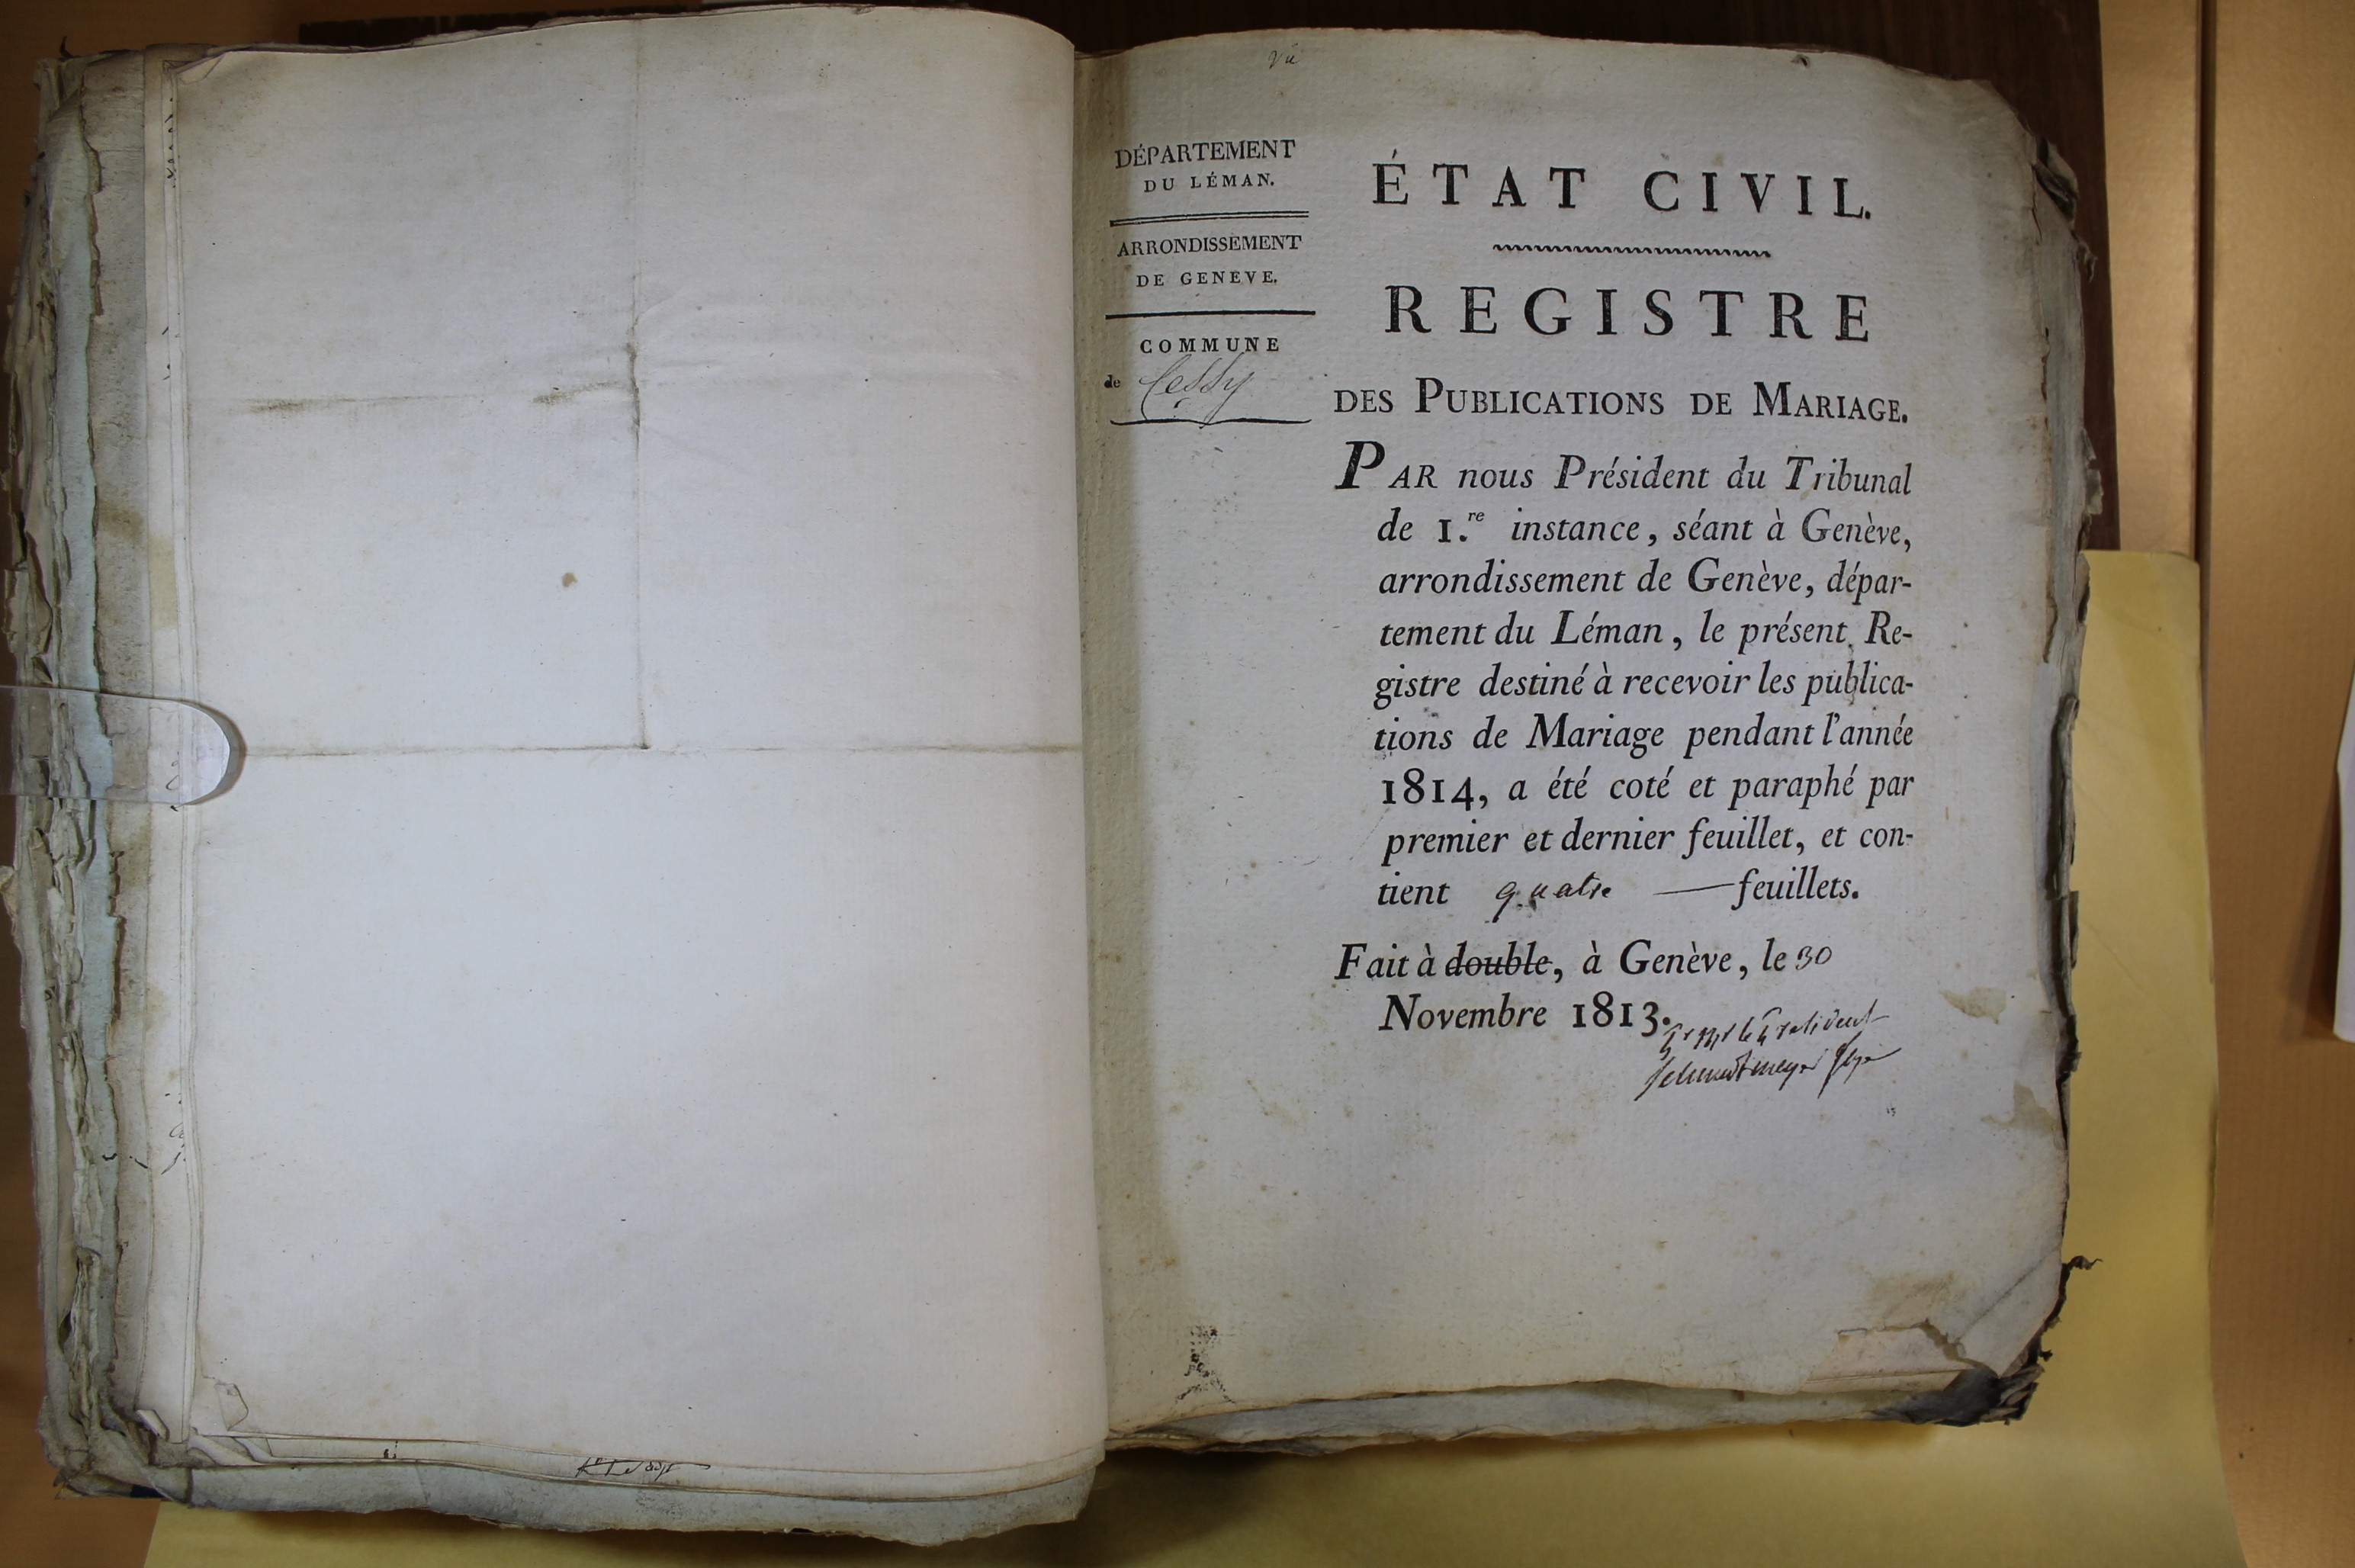 Vu
DÉPARTEMENT
DU LÉMAN.
ARRONDISSEMENT
DE GENEVE.
COMMUNE
de Cessy
ÉTAT CIVIL.
REGISTRE
DES PUBLICATIONS DE MARIAGE.
PAR nous Président du Tribunal
de 1.re instance, séant à Genève,
arrondissement de Genève, dépar-
tement du Léman, le présent Re-
gistre destiné à recevoir les publica-
tions de Mariage pendant l'année
1814, a été coté et paraphé par
premier et dernier feuillet, et con-
tient quatre — feuillets.
Fait à double, à Genève, le 30
Novembre 1813.
Pr Mr le Président